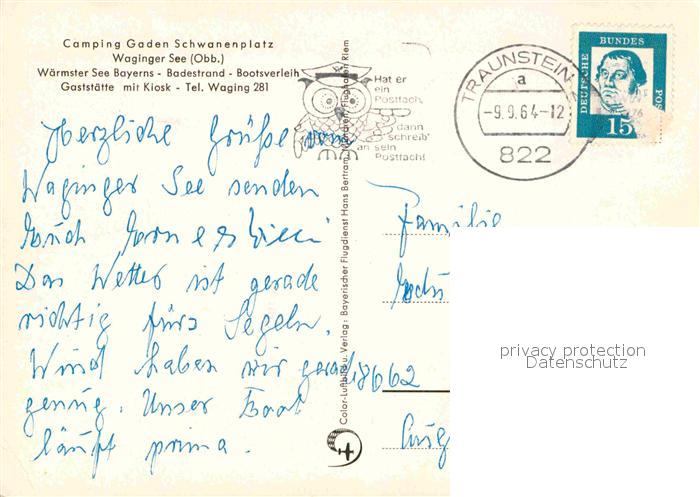 Camping Gaden Schwanenplatz
Waginger See (Obb.)
Wärmster See Bayerns - Badestrand - Bootsverleih
Gaststätte mit Kiosk - Tel. Waging 281
Hat er
ein
Postfach,
dann
schreib'
an sein
Postfach!
TRAUNSTEIN
a
-9.9.64-12
822
DEUTSCHE BUNDESPOST
15
Herzliche Grüße vom
Waginger See senden
Euch
Das Wetter ist gerade
richtig fürs Segeln.
Wind haben wir gerade
genug. Unser Boot
läuft prima.
Color-Luftbild u. Verlag: Bayerischer Flugdienst Hans Bertram, München, Flughafen Riem
Familie
8662
privacy protection
Datenschutz